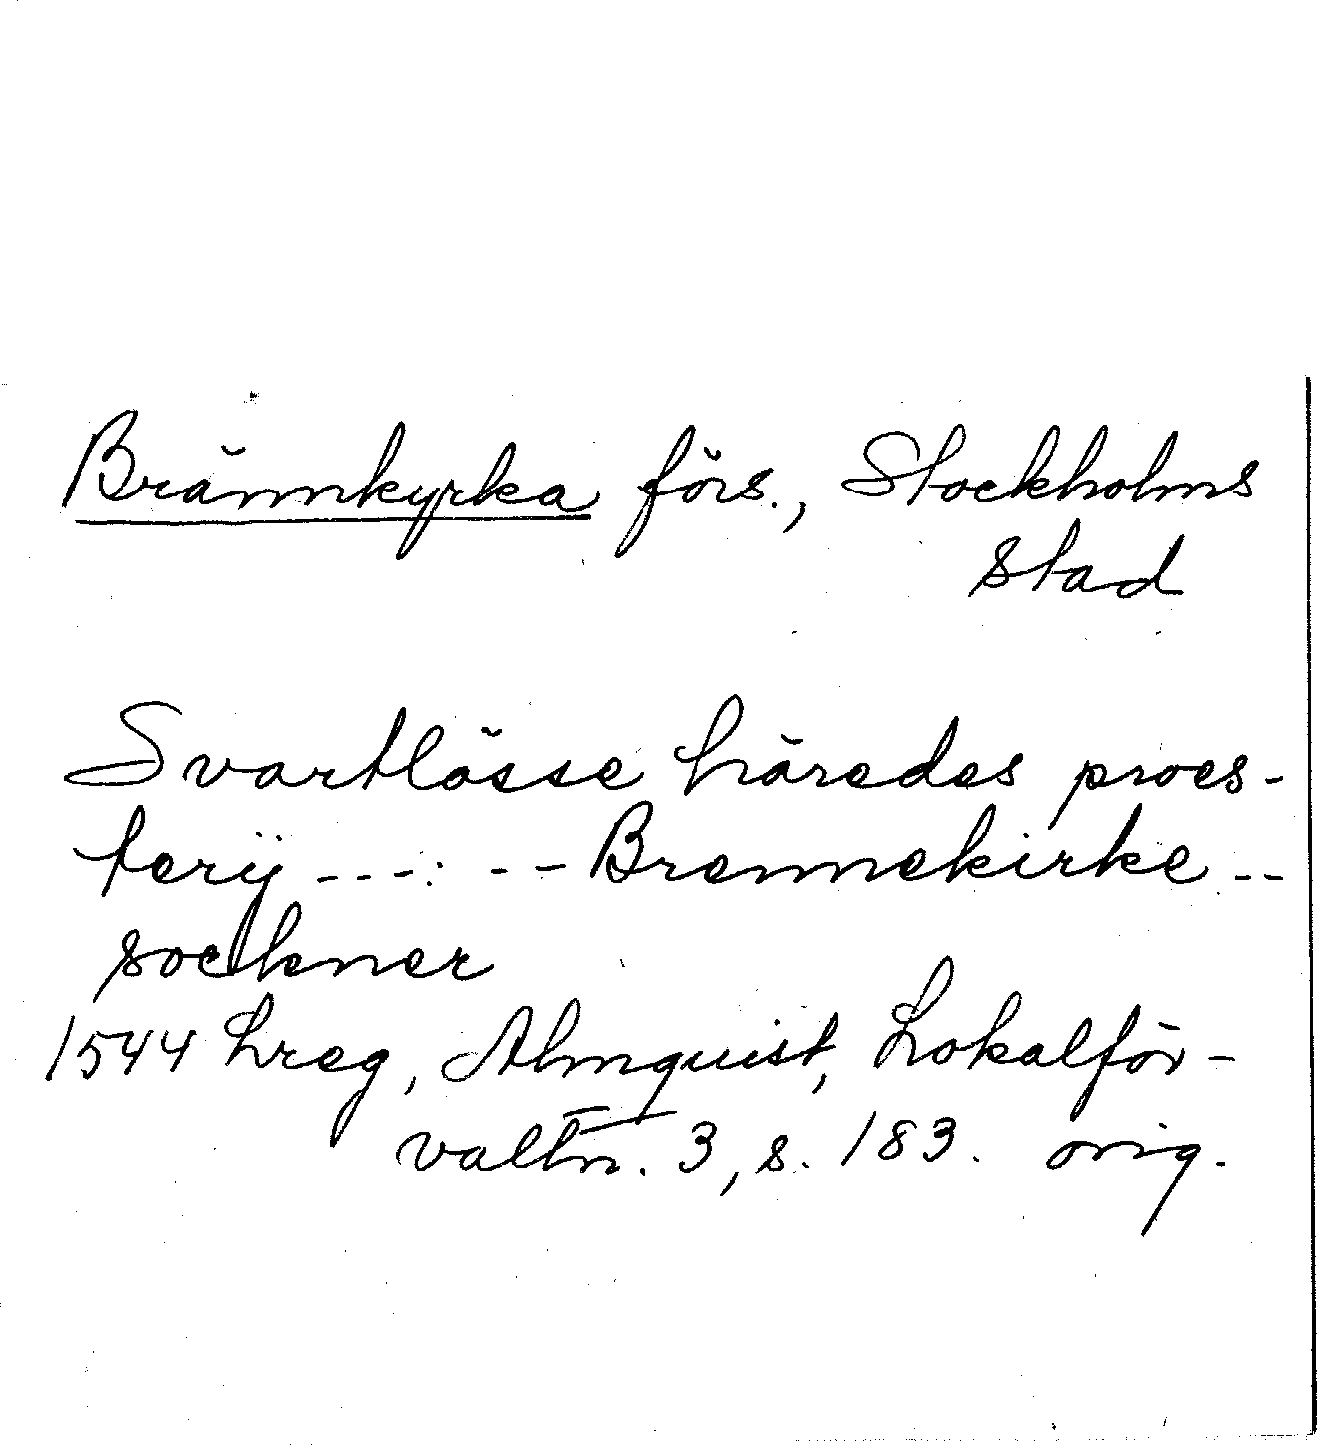 Brännkyrka förs., Stockholms
stad
Svartlösse häredes proes-
terÿ ----- -- Brennekirke --
sockner
1544 Lreg, Almquist, Lokalför-
valtn. 3, s. 183. orig.